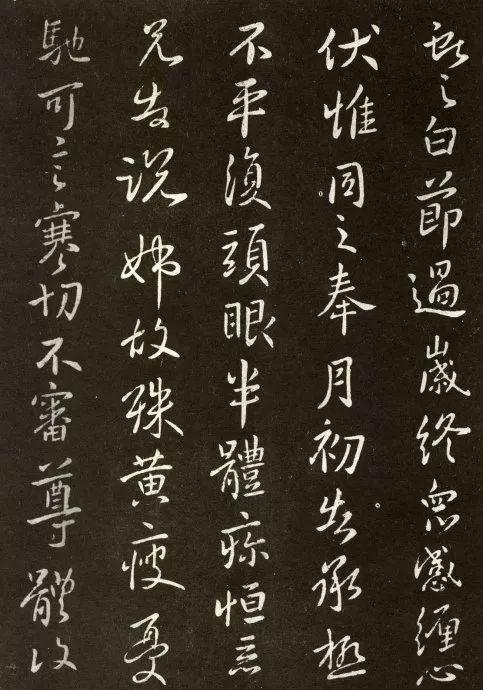 獻之白節過歲終眾感纏心
伏惟同之奉月初告承極
不平復頭眼半體疼恒惡
兄告說姊故殊黃瘦憂
馳可言寒切不審尊體復